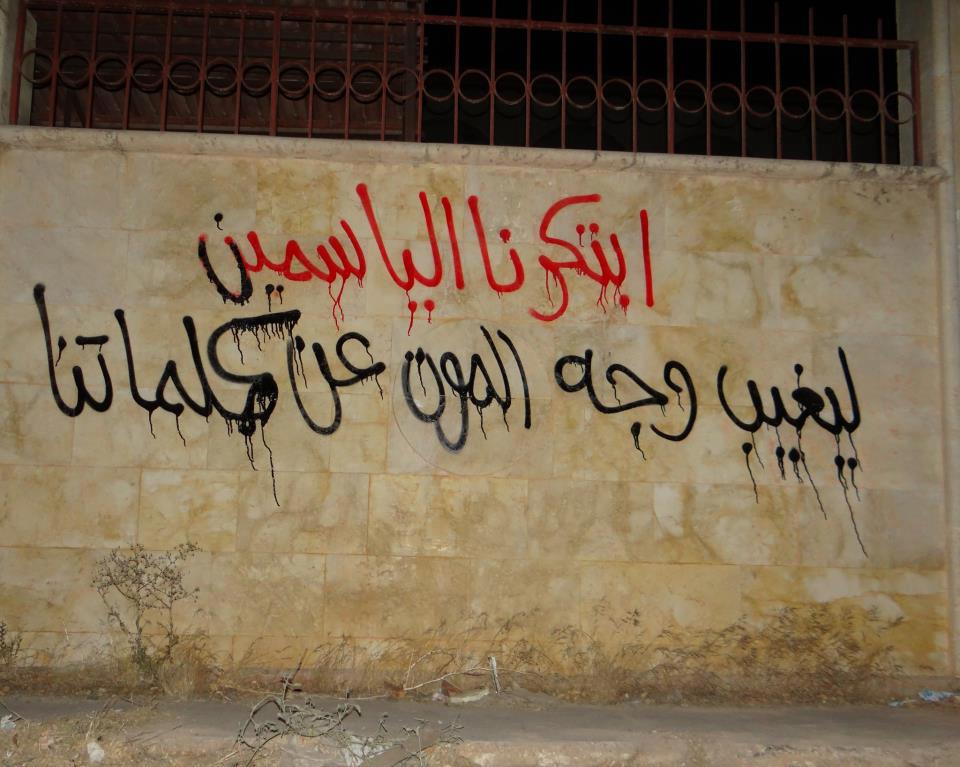 ابتكرنا الياسمين
ليغيب وجه الموت عن كلماتنا